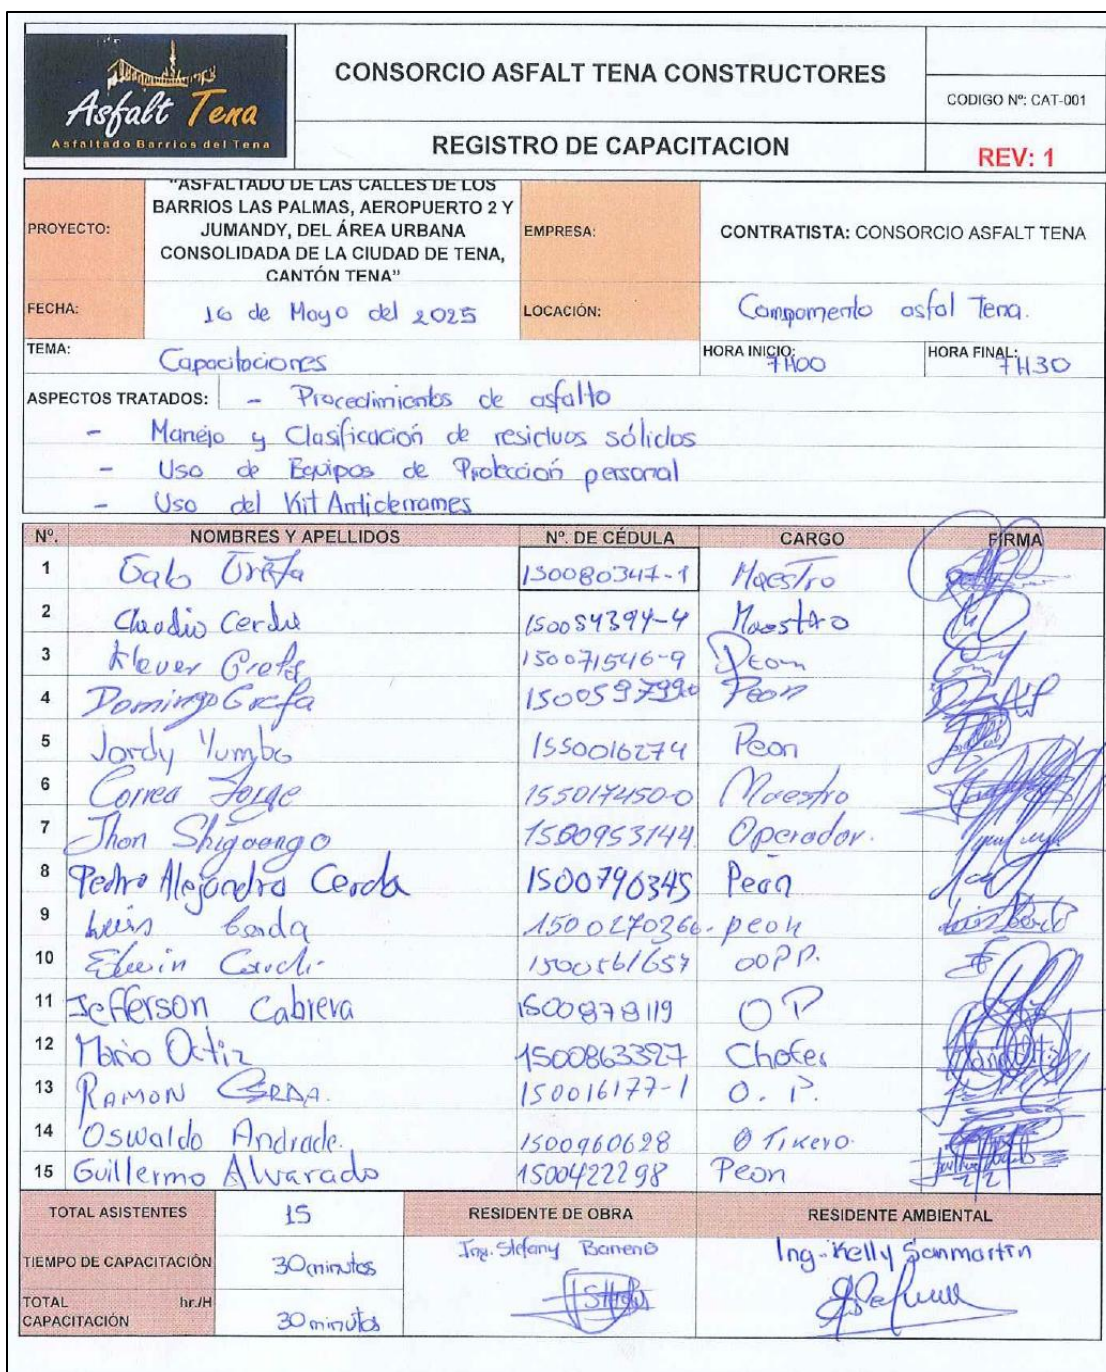 Asfalt Tena
Asfaltado Barrios del Tena
CONSORCIO ASFALT TENA CONSTRUCTORES
CODIGO Nº: CAT-001
REGISTRO DE CAPACITACION
REV: 1
PROYECTO:
"ASFALTADO DE LAS CALLES DE LOS
BARRIOS LAS PALMAS, AEROPUERTO 2 Y
JUMANDY, DEL ÁREA URBANA
CONSOLIDADA DE LA CIUDAD DE TENA,
CANTÓN TENA"
EMPRESA:
CONTRATISTA: CONSORCIO ASFALT TENA
FECHA: 16 de Mayo del 2025
LOCACIÓN: Campamento asfal Tena.
TEMA: Capacitaciones
HORA INICIO: 7H00
HORA FINAL: 7H30
ASPECTOS TRATADOS: - Procedimientos de asfalto
- Manejo y Clasificación de residuos sólidos
- Uso de Equipos de Protección personal
- Uso del Kit Antiderrames
Nº. NOMBRES Y APELLIDOS Nº. DE CÉDULA CARGO FIRMA
1 Galo 150080347-1 Maestro
2 Claudio Cerda 150054394-4 Maestro
3 Klever Grefa 150071546-9 Peon
4 Domingo Grefa Peon
5 Jordy Yumbo 1550016274 Peon
6 Correa Jorge 155017450-0 Maestro
7 Jhon Shiguango 1500953144 Operador.
8 Pedro Alejandro Cerda 1500790345 Peon
9 Luis Cerda 1500270366- peon
10 Edwin 1500561657 OOPP.
11 Jefferson Cabrera 1500878119 OP
12 Mario Ortiz 1500863327 Chofer
13 RAMON CERDA. 150016177-1 O. P.
14 Oswaldo Andrade. 1500960628
15 Guillermo Alvarado 1500422298 Peon
TOTAL ASISTENTES 15
RESIDENTE DE OBRA
RESIDENTE AMBIENTAL
TIEMPO DE CAPACITACIÓN 30 minutos
Ing. Stefany
Ing. Kelly Sanmartin
TOTAL hr./H
CAPACITACIÓN 30 minutos